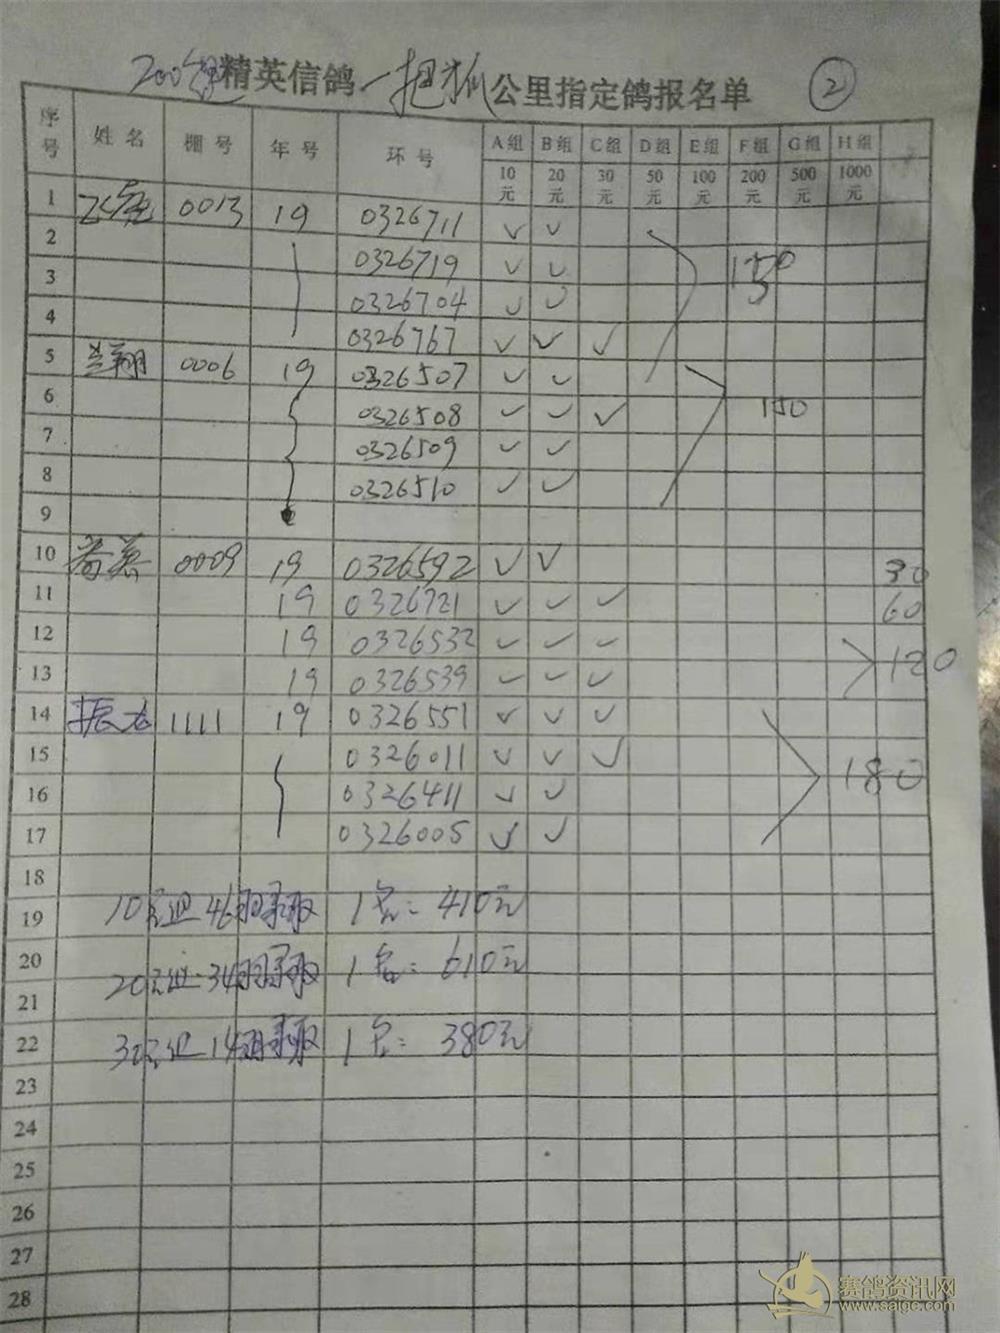 200 精英信鸽一把抓公里指定鸽报名单 ②
序号 姓名 棚号 年号 环号 A组 B组 C组 D组 E组 F组 G组 H组
10元 20元 30元 50元 100元 200元 500元 1000元
1 0013 19 0326711 ✓ ✓
2 0326719 ✓ ✓ 150
3 0326704 ✓ ✓
4 0326767 ✓ ✓ ✓
5 兰翔 0006 19 0326507 ✓ ✓
6 0326508 ✓ ✓ ✓ 150
7 0326509 ✓ ✓
8 0326510 ✓ ✓
9
10 0009 19 0326592 ✓ ✓ 30
11 19 0326721 ✓ ✓ ✓ 60
12 19 0326532 ✓ ✓ ✓
13 19 0326539 ✓ ✓ ✓ 120
14 振龙 1111 19 0326551 ✓ ✓ ✓
15 0326011 ✓ ✓ ✓ 180
16 0326411 ✓ ✓
17 0326005 ✓ ✓
18
19 10元组 46羽录取 1名: 410元
20 20元组 34羽录取 1名: 610元
21
22 30元组 14羽录取 1名: 380元
23
24
25
26
27
28
赛鸽资讯网
www.saige.com